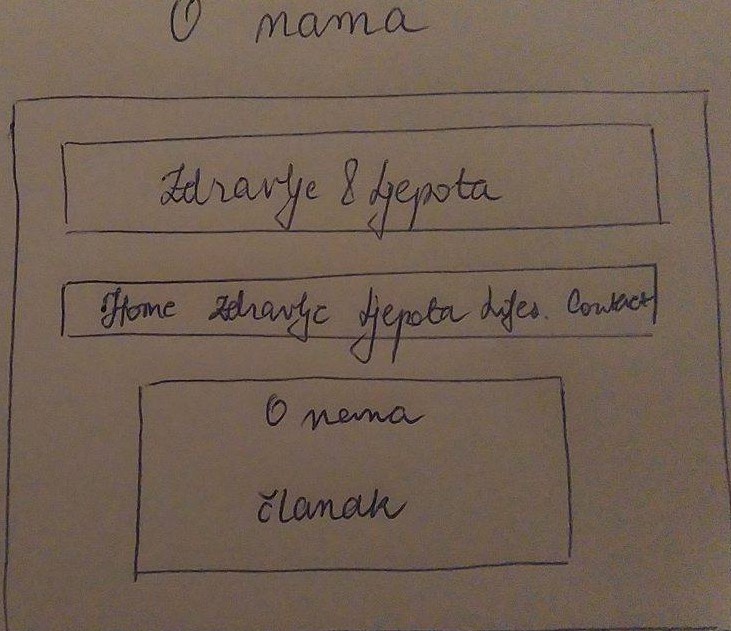 O nama
Zdravlje & ljepota
Home Zdravlje ljepota Lifes. Contact
O nama
članak